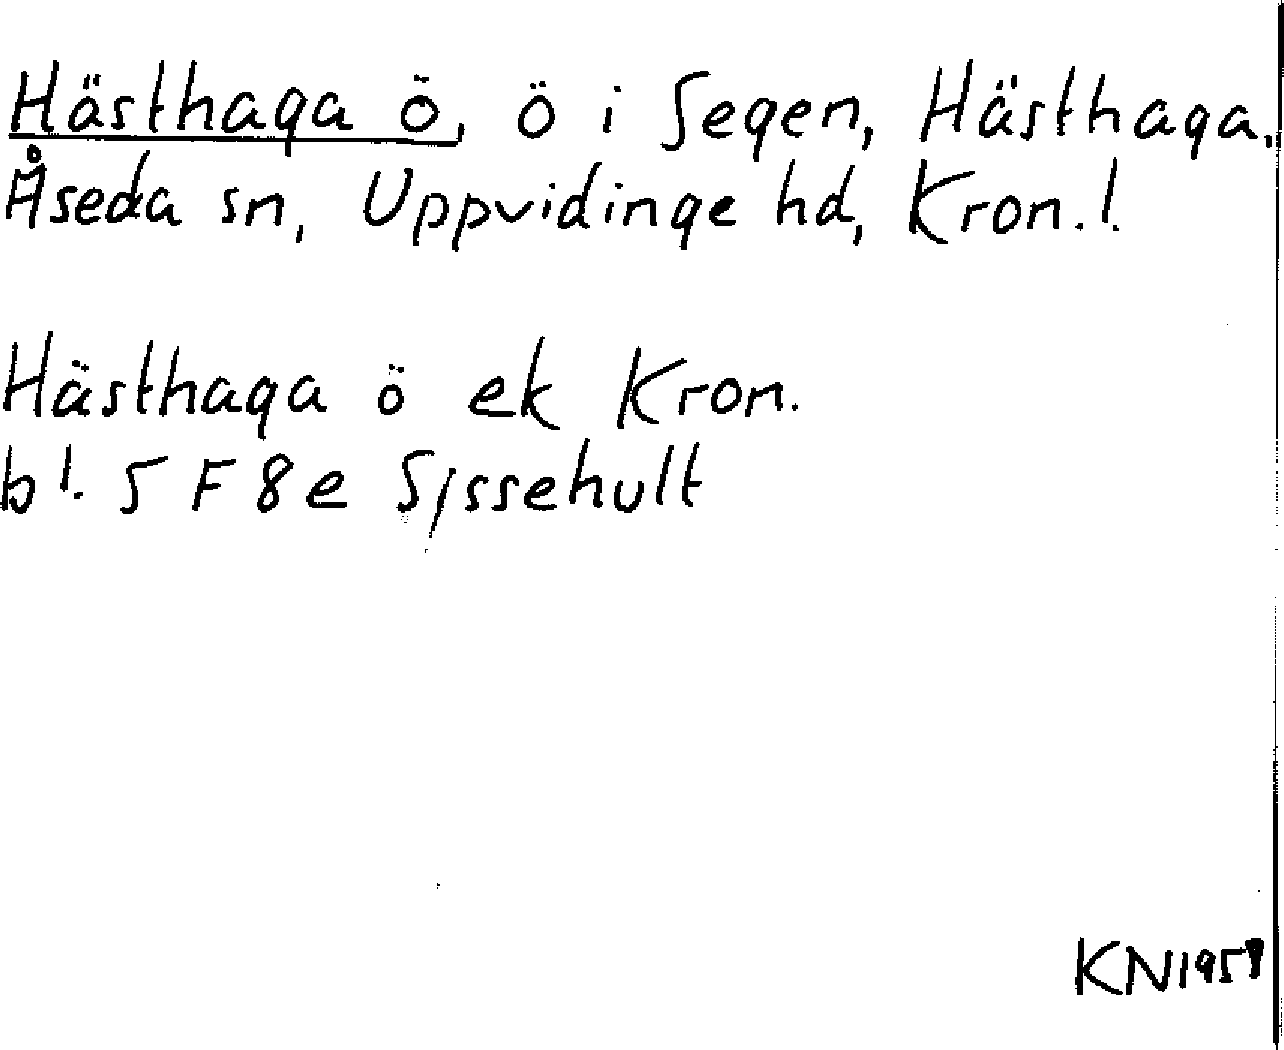 Hästhaga ö, ö i Segen, Hästhaga,
Åseda sn, Uppvidinge hd, Kron.l.
Hästhaga ö ek Kron.
bl. 5 F 8e Sissehult